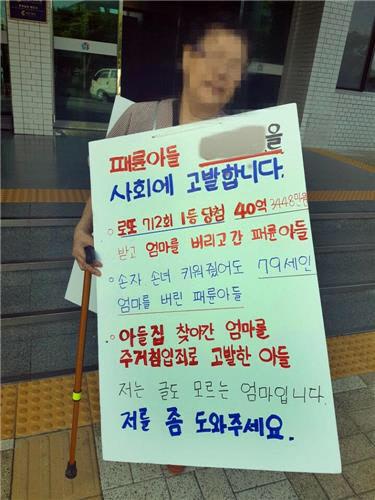 패륜아들 을
사회에 고발합니다.
○ 로또 712회 1등 당첨 40억 3448만원
받고 엄마를 버리고 간 패륜아들
○ 손자 손녀 키워줬어도 79세인
엄마를 버린 패륜아들
○ 아들집 찾아간 엄마를
주거침입죄로 고발한 아들
저는 글도 모르는 엄마입니다.
저를 좀 도와주세요.